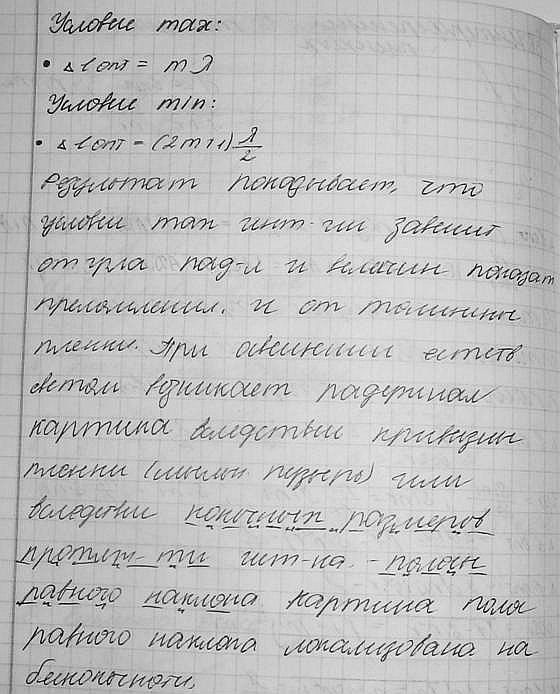 Условие max:
• Δ l опт = mλ
Условие min:
• Δ l опт = (2m+1) λ/2
Результат показывает, что
условии max инт-ии зависит
от угла пад-я и величин показат
преломления. и от толщины
пленки. При освещении естеств
светом возникает
картина вследствие кривизны
пленки (мыльн пузырь) или
вследствии конечных размеров
протяж-ти ист-ка. - полосы
равного наклона картина полос
равного наклона локализована на
бесконечности.